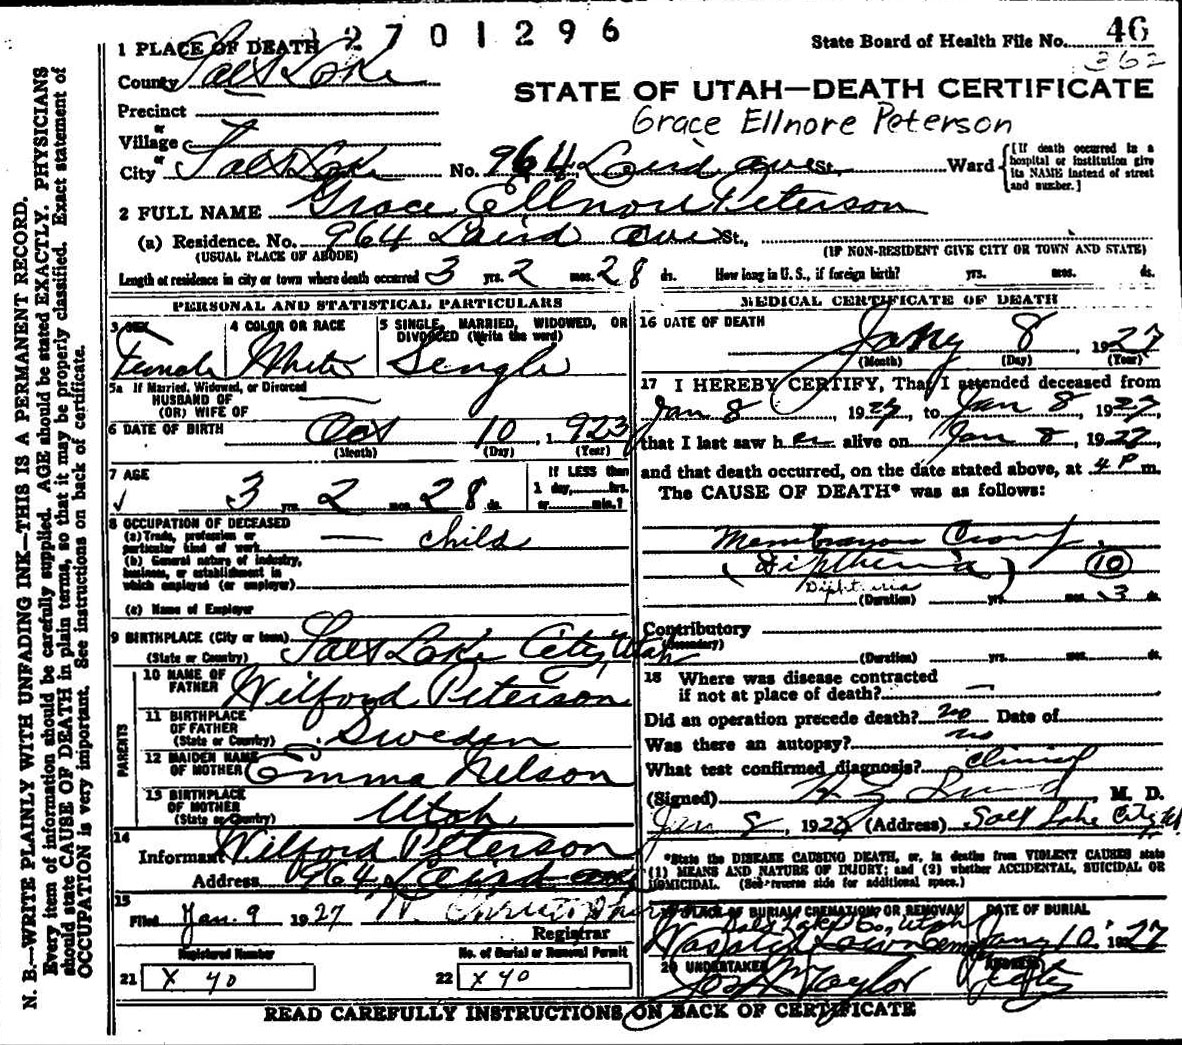 2701296
State Board of Health File No. 46
362
1 PLACE OF DEATH
County Salt Lake
STATE OF UTAH—DEATH CERTIFICATE
Precinct
Grace Ellnore Peterson
or
Village
or
City Salt Lake No. 964 Laird ave St. Ward
[If death occurred in a hospital or institution give its NAME instead of street and number.]
2 FULL NAME Grace Ellnore Peterson
(a) Residence. No. 964 Laird ave St.,
(USUAL PLACE OF ABODE) (IF NON-RESIDENT GIVE CITY OR TOWN AND STATE)
Length of residence in city or town where death occurred 3 yrs. 2 mos. 28 ds. How long in U. S., if foreign birth? yrs. mos. ds.
PERSONAL AND STATISTICAL PARTICULARS
3 SEX
Female
4 COLOR OR RACE
White
5 SINGLE, MARRIED, WIDOWED, OR
DIVORCED (Write the word)
Single
5a If Married, Widowed, or Divorced
HUSBAND OF
(OR) WIFE OF
6 DATE OF BIRTH Oct 10, 1923
(Month) (Day) (Year)
7 AGE
3 yrs. 2 mos. 28 ds.
If LESS than
1 day, hrs.
or min.?
8 OCCUPATION OF DECEASED
(a) Trade, profession or
particular kind of work — Child
(b) General nature of industry,
business, or establishment in
which employed (or employer)
(c) Name of Employer
9 BIRTHPLACE (City or town) Salt Lake City, Utah
(State or Country)
PARENTS
10 NAME OF
FATHER Wilford Peterson
11 BIRTHPLACE
OF FATHER
(State or Country) Sweden
12 MAIDEN NAME
OF MOTHER Emma Nelson
13 BIRTHPLACE
OF MOTHER
(State or Country) Utah
14
Informant Wilford Peterson
Address 964 Laird ave
15
Filed Jan. 9 1927
Registrar
Registered Number
21 X 40
No. of Burial or Removal Permit
22 X 40
MEDICAL CERTIFICATE OF DEATH
16 DATE OF DEATH
Jany 8, 1927
(Month) (Day) (Year)
17 I HEREBY CERTIFY, That I attended deceased from
Jan 8, 1927, to Jan 8, 1927,
that I last saw her alive on Jan 8, 1927
and that death occurred, on the date stated above, at 4 P m.
The CAUSE OF DEATH* was as follows:
Membranous Croup
(Diptheria) 10
Diptheria
(Duration) yrs. mos. 3 ds.
Contributory
(Secondary)
(Duration) yrs. mos. ds.
18 Where was disease contracted
if not at place of death? —
Did an operation precede death? no Date of
Was there an autopsy? no
What test confirmed diagnosis? Clinical
(Signed) Lund M. D.
Jan 8, 1927 (Address) Salt Lake City
*State the DISEASE CAUSING DEATH, or, in deaths from VIOLENT CAUSES state
(1) MEANS AND NATURE OF INJURY; and (2) whether ACCIDENTAL, SUICIDAL OR
HOMICIDAL. (See reverse side for additional space.)
19 PLACE OF BURIAL, CREMATION, OR REMOVAL
Salt Lake Co., Utah
Wasatch Lawn Cem
DATE OF BURIAL
Jany 10, 1927
20 UNDERTAKER
Taylor
ADDRESS
City
READ CAREFULLY INSTRUCTIONS ON BACK OF CERTIFICATE
N. B.—WRITE PLAINLY WITH UNFADING INK—THIS IS A PERMANENT RECORD.
Every item of information should be carefully supplied. AGE should be stated EXACTLY. PHYSICIANS
should state CAUSE OF DEATH in plain terms, so that it may be properly classified. Exact statement of
OCCUPATION is very important. See instructions on back of certificate.